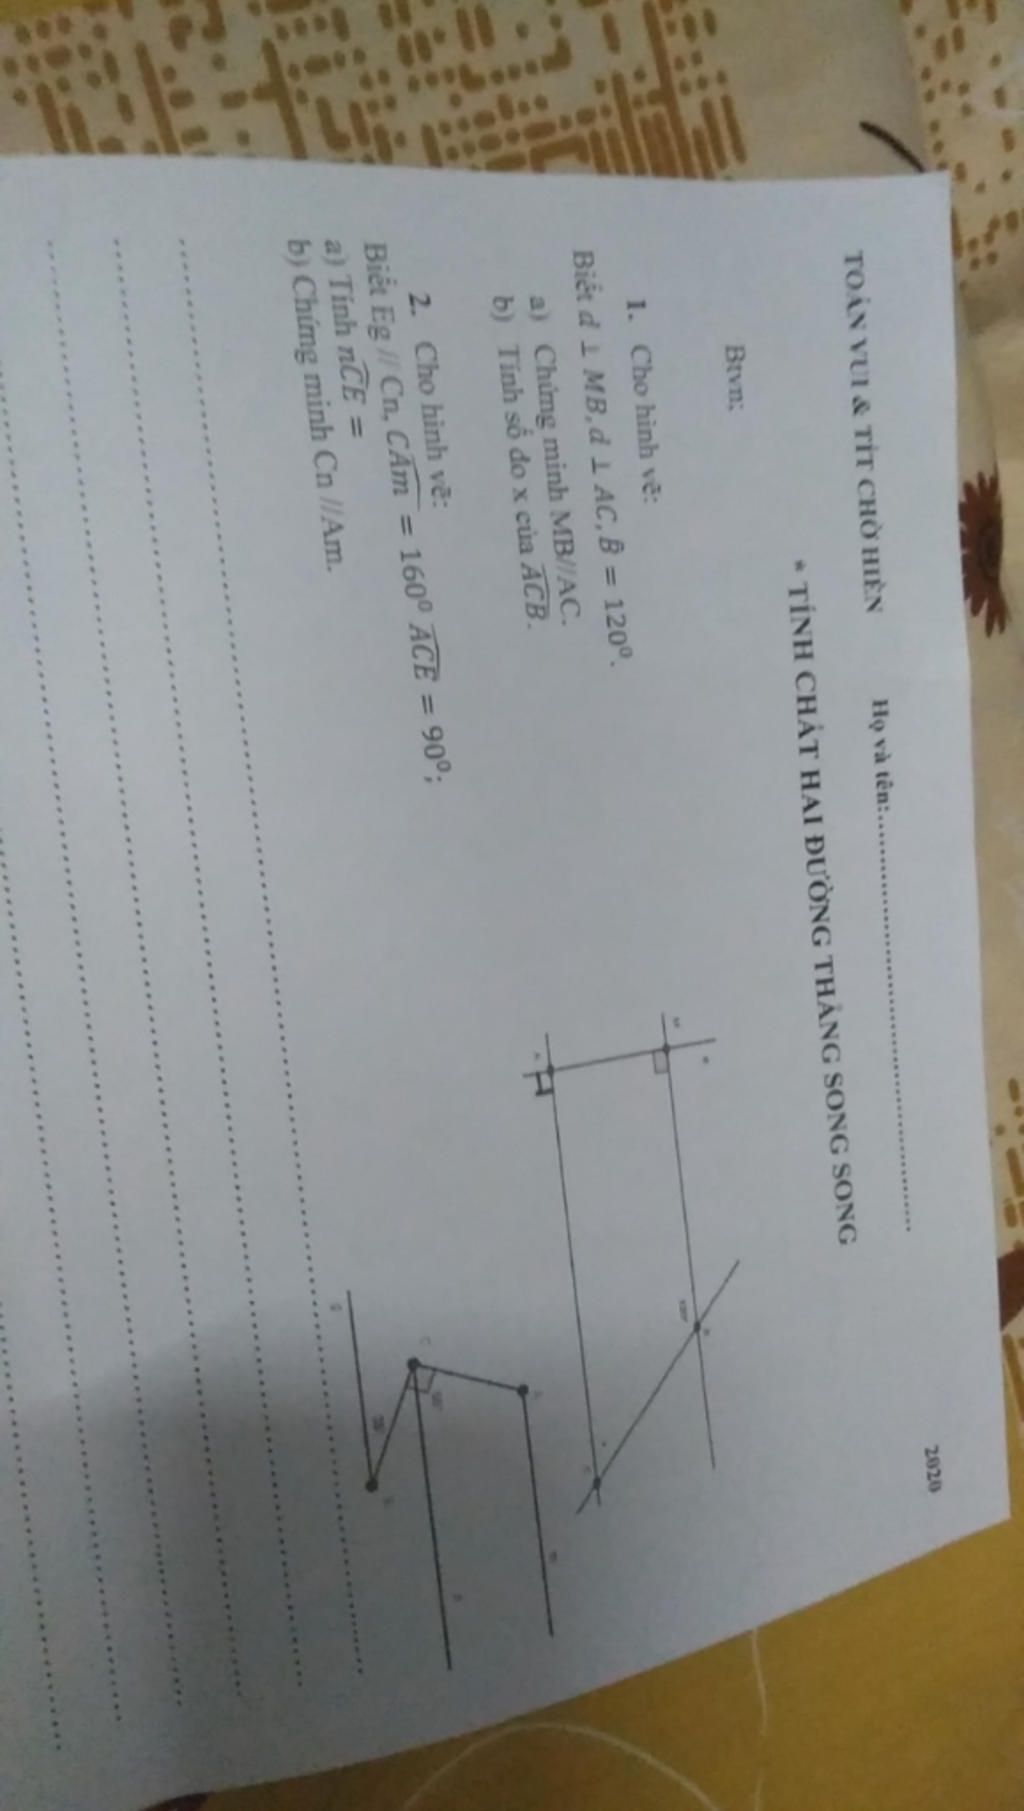 TOÁN VUI & TÍT CHỜ HIÈN Họ và tên:........................ 2020
* TÍNH CHẤT HAI ĐƯỜNG THẲNG SONG SONG
Btvn;
1. Cho hình vẽ:
Biết d ⊥ MB, d ⊥ AC, B̂ = 120⁰.
a) Chứng minh MB//AC.
b) Tính số đo x của \widehat{ACB}.
2. Cho hình vẽ:
Biết Eg // Cn, \widehat{CAm} = 160⁰ \widehat{ACE} = 90⁰;
a) Tính \widehat{nCE} =
b) Chứng minh Cn //Am.